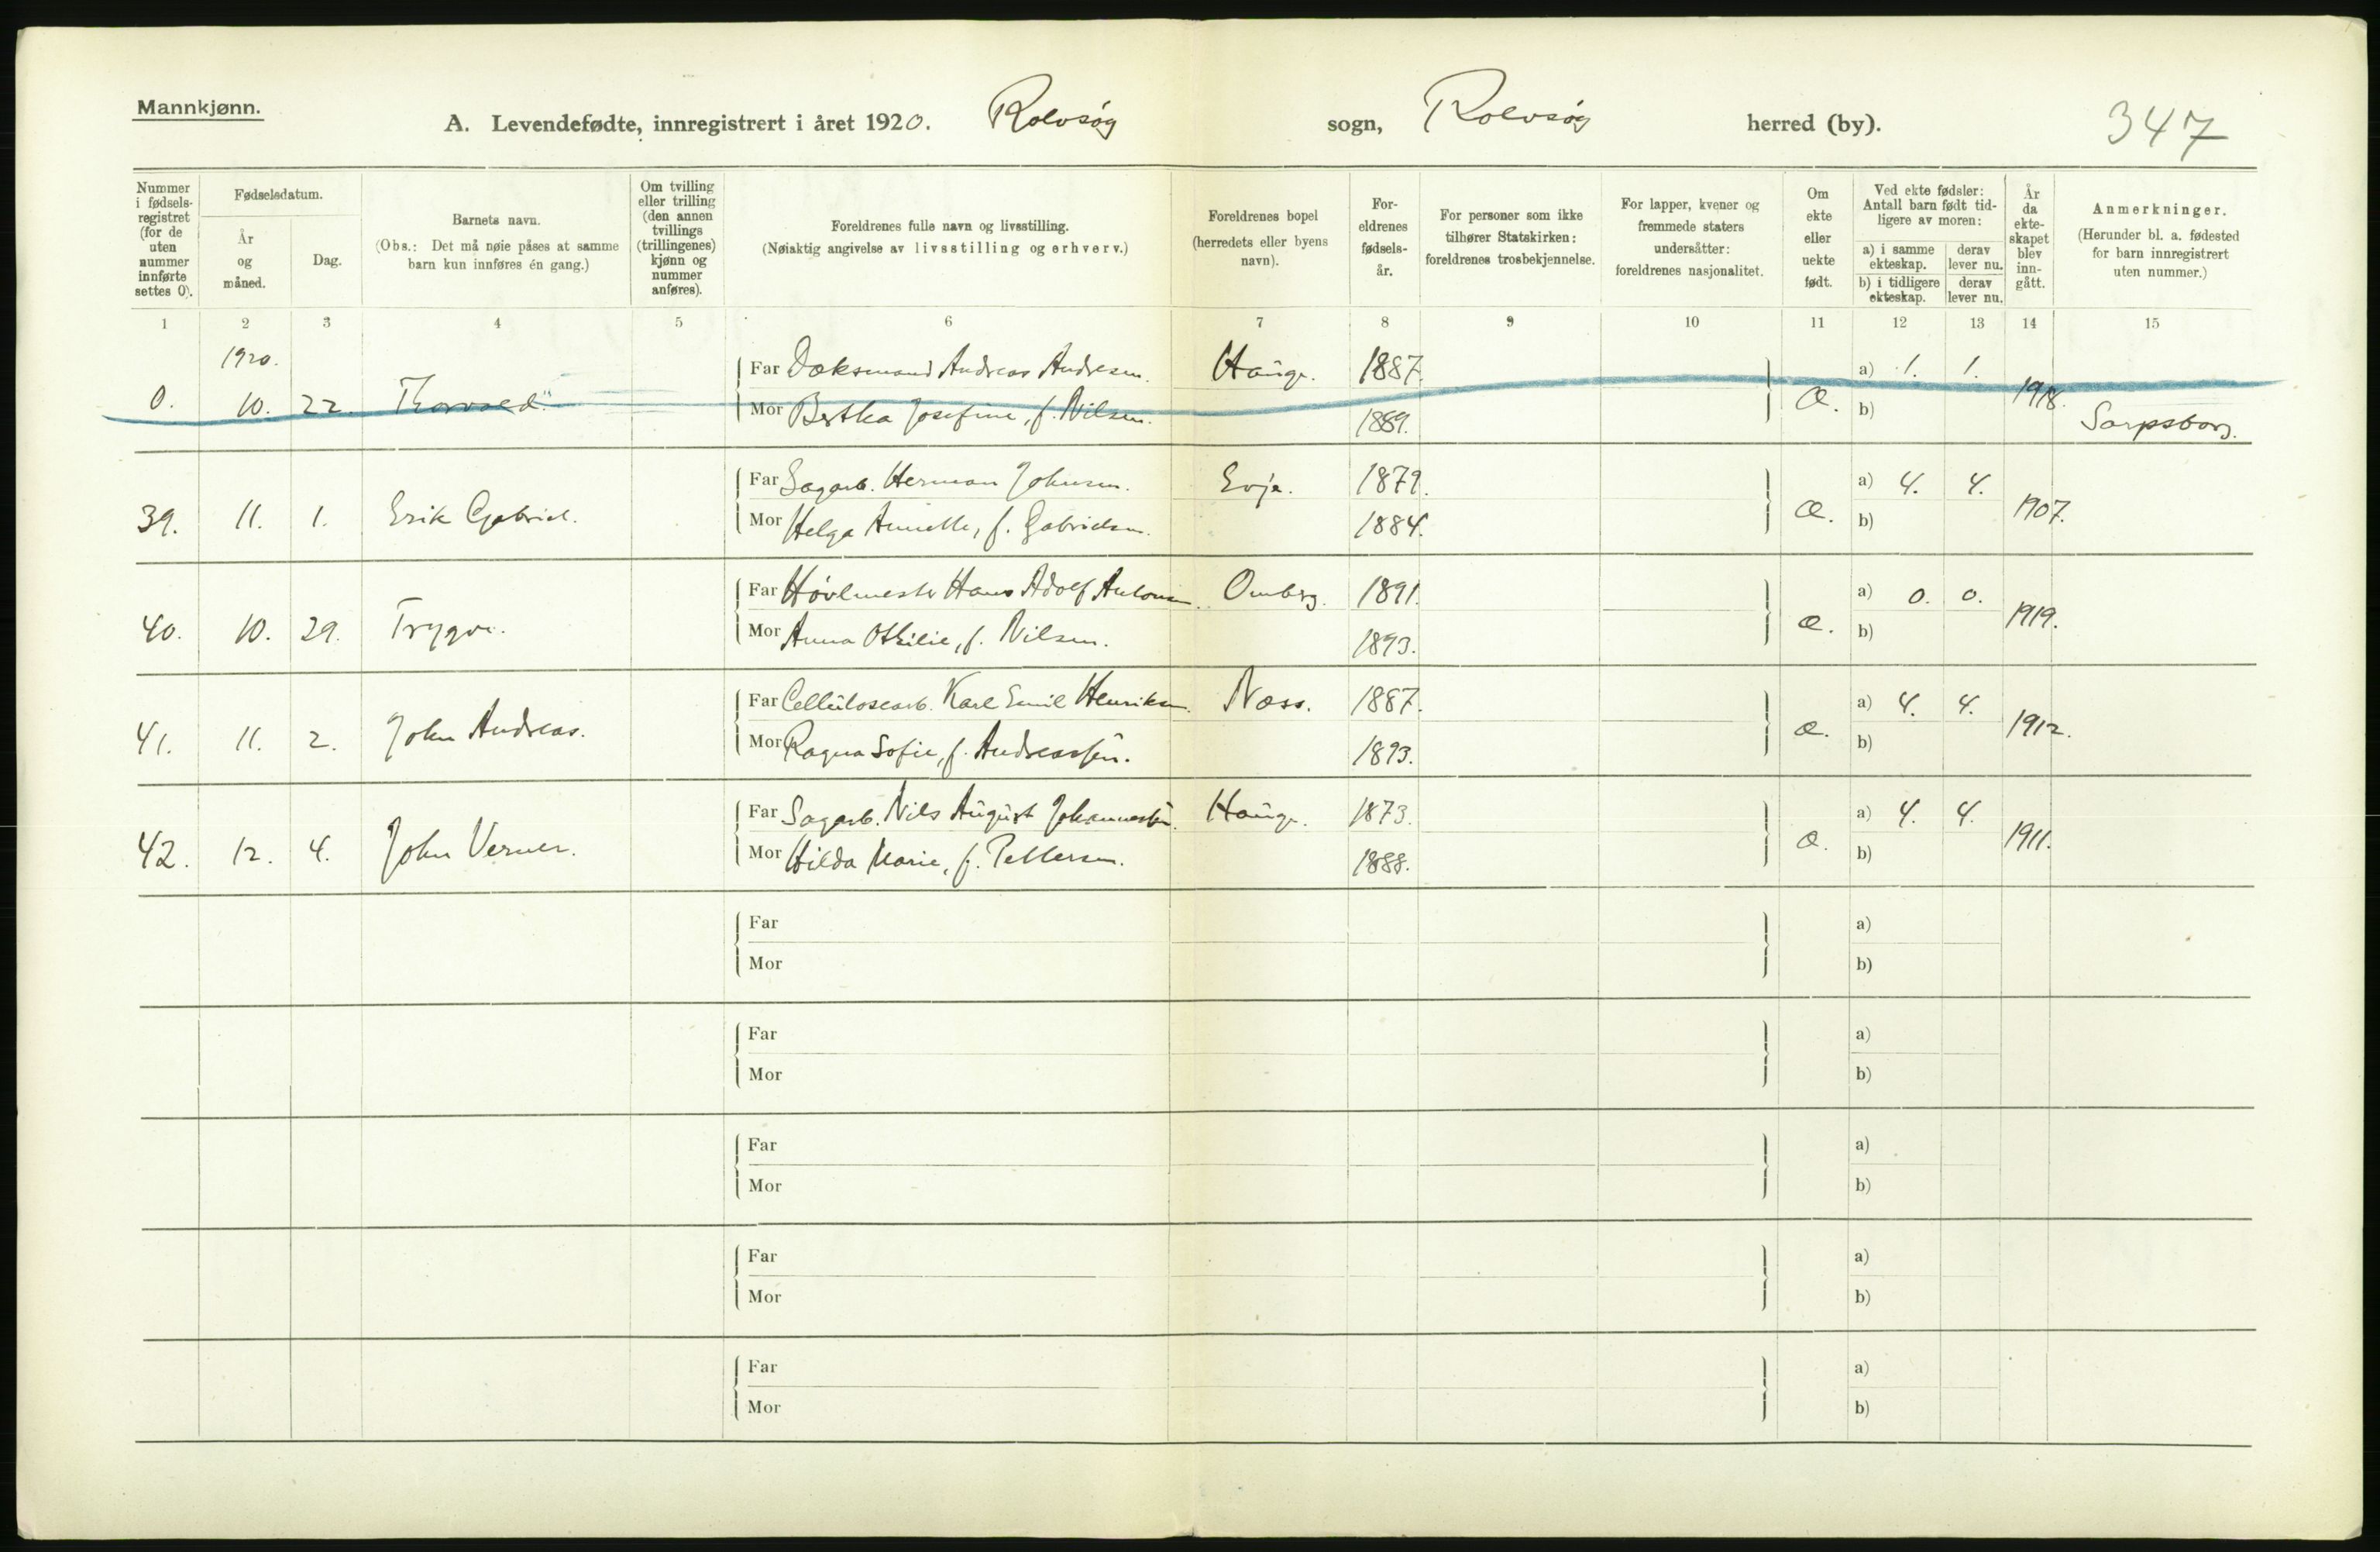 Mannkjønn.
A. Levendefødte, innregistrert i året 1920. Rolvsøy sogn, Rolvsøy herred (by).
347
Nummer i fødsels-registret (for de uten nummer innførte settes 0).
Fødselsdatum.
År og måned.
Dag.
Barnets navn.
(Obs.: Det må nøie påses at samme barn kun innføres én gang.)
Om tvilling eller trilling (den annen tvillings (trillingenes) kjønn og nummer anføres).
Foreldrenes fulle navn og livsstilling.
(Nøiaktig angivelse av livsstilling og erhverv.)
Foreldrenes bopel (herredets eller byens navn).
For-eldrenes fødsels-år.
For personer som ikke tilhører Statskirken: foreldrenes trosbekjennelse.
For lapper, kvener og fremmede staters undersåtter: foreldrenes nasjonalitet.
Om ekte eller uekte født.
Ved ekte fødsler: Antall barn født tid-ligere av moren:
a) i samme ekteskap.
derav lever nu.
b) i tidligere ekteskap.
derav lever nu.
År da ekte-skapet blev inn-gått.
Anmerkninger.
(Herunder bl. a. fødested for barn innregistrert uten nummer.)
1 2 3 4 5 6 7 8 9 10 11 12 13 14 15
1920.
0. 10. 22. Thorvald."
Far Dæksmand Andreas Andresen. Hauge. 1887. a) 1. 1.
Mor Bertha Josefine, f. Nilsen. 1889. Æ. b) 1918. Sarpsborg.
39. 11. 1. Erik Gabriel.
Far Sagarb. Herman Johnsen. Evje. 1879. a) 4. 4.
Mor Helga Annette, f. Gabrielsen. 1884. Æ. b) 1907.
40. 10. 29. Trygve.
Far Høvlmester Hans Adolf Antonsen. Omberg. 1891. a) 0. 0.
Mor Anna Othilie, f. Nilsen. 1893. Æ. b) 1919.
41. 11. 2. John Andreas.
Far Cellulosearb. Karl Emil Henriksen. Næss. 1887. a) 4. 4.
Mor Ragna Sofie, f. Andreassen. 1893. Æ. b) 1912.
42. 12. 4. John Verner.
Far Sagarb. Nils August Johannessen. Hauge. 1873. a) 4. 4.
Mor Hilda Marie, f. Pettersen. 1888. Æ. b) 1911.
Far a)
Mor b)
Far a)
Mor b)
Far a)
Mor b)
Far a)
Mor b)
Far a)
Mor b)